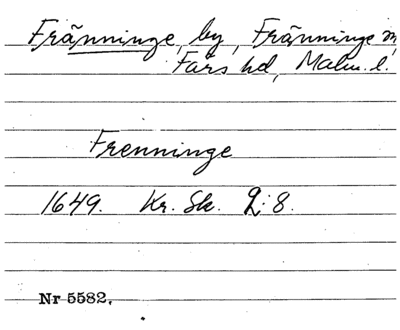 Fränninge, by, Fränninge
Färs hd, Malm. l.
Frenninge
1649. Kr. Sk. 2:8.
Nr 5582.